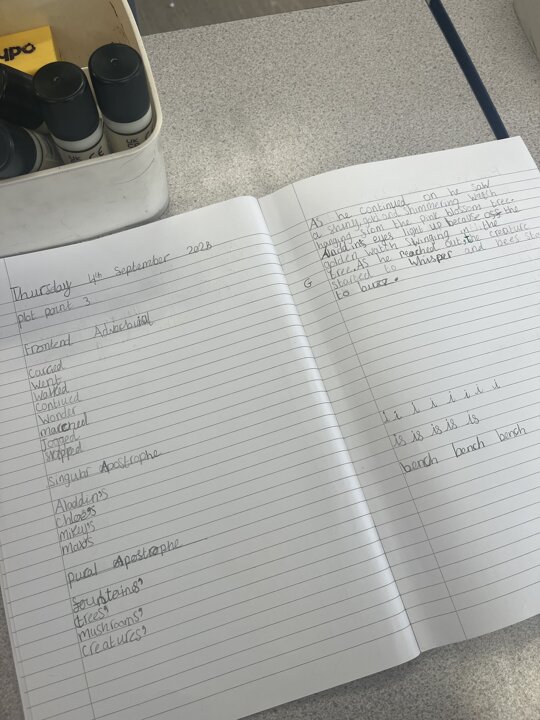 Thursday 4th September 2025
plot point 3
Frontend Adverbuial
Carried
Went
Walked
Contiued
Wonder
marched
Jogged
skipped
singular Apostrophe
Aladdin's
Chloe's
mikey's
max's
pural Apostrophe
fountains'
trees'
mushrooms'
creatures'
As he continued on he saw
a shiny, gold shimmering watch
hanging from the pink blossom tree.
Aladdin's eyes light up because of the
golden watch swinging in the
tree. As he reached out it creature
started to whisper and bees
to buzz.
G
i i i i i i i i
is is is is is
bench bench bench